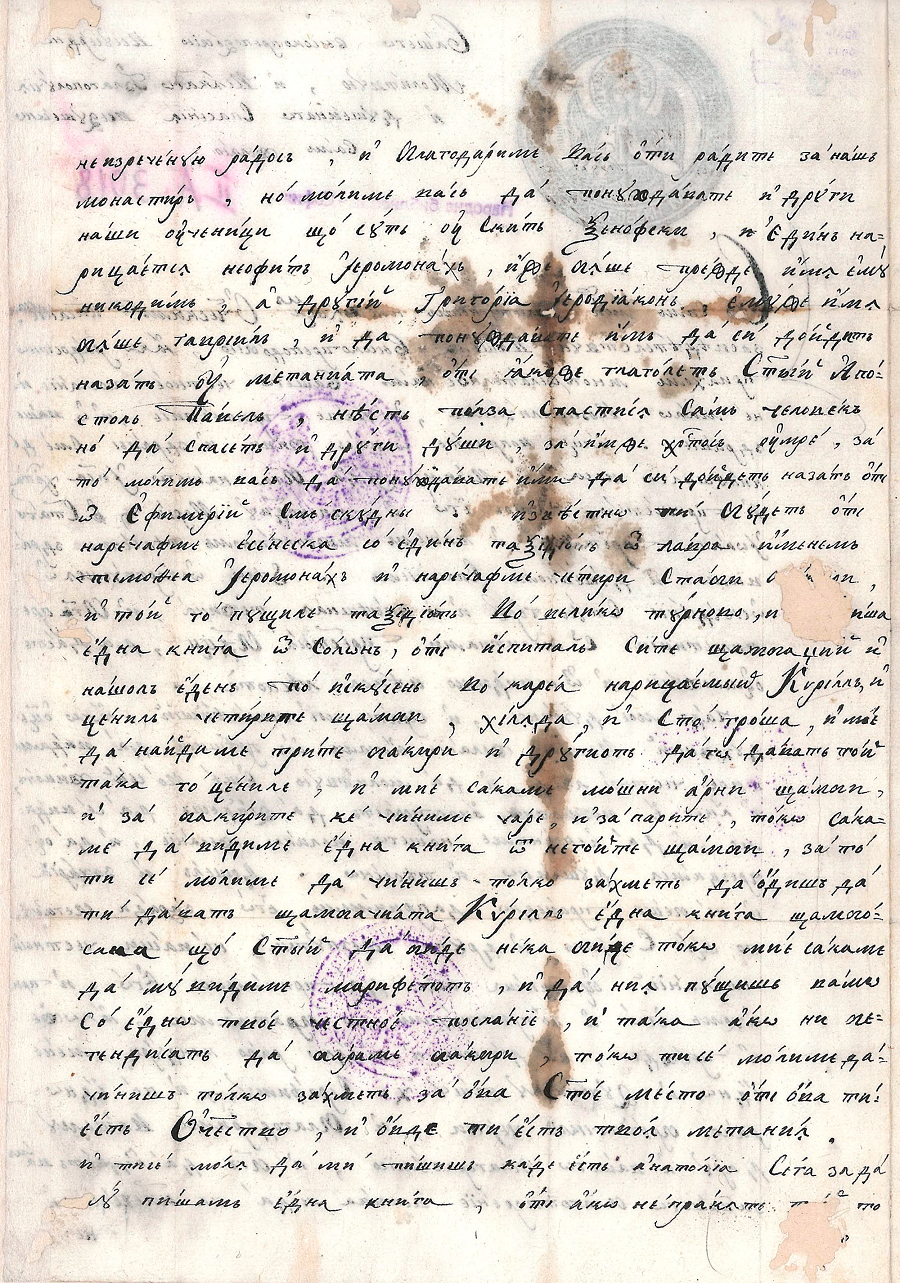 неизреченую радось , и благодариме вась ѻти радите за нашь
монастирь , но молиме вась да понуждавате и други
наши ѹченици що сүть ѹ Скить Ѯенофски , и единь на=
рицается неофить Іеромонахъ , иже бяше прежде имя емү
никодимь , а другїй Григорїа Іеродїаконь , емүже имя
бяше гавриилъ , и да понүждавате имь да си дойдать
назать ѹ метанията , ѻти якоже глаголеть С͠тый Апо=
столь Павель , нѣсть полза спастися самь человекь
но да спасеть и други души , за ихже хр͠тось ѹмре , за
то молимо вась да понуждавате ими да си дойдеть назать ѻти
ѿ Ефимерїй сме скудны извѣстно ти будеть ѻти
наречафме есенеска со единь таѯидїоть ѿ лавра именемь
Іеромонахъ и наречафме четири Стаси
и той го пүщиле таѯидїоть во велико търново , и
една книга ѿ Солонь , ѻти испиталь сите щамбаџий и
нашоль едень по искүсень во кареа нарицаемый Кѵриллъ, и
ценилъ четирите щамби , хіляда , и сто гроша , и мїе
да найдиме трите бакири и другиоть да го даватъ той
така го цениле , и мїе сакаме мошни арни щамби ,
и за бакирите ке чиниме чаре , и за парите , токо сака=
ме да видиме една книга ѿ негойте щамби , за то
ти се молиме да чинишъ толко захметь да ѻдишъ да
ти даватъ щамбачиата Кѵриллъ една книга щамбо=
сана що С͠тый да биде нека биде токо мїе сакаме
да мү видиме марифетоть , и да ния пүщишъ вамо
Со едно твое честное посланїе , и така ако ни бе=
гендисатъ да бараме бакири , токо ти се молиме да=
чинишъ толко захметь за ѻва С͠тое место ѻти ѻва ти=
есть Отчество , и ѻвде ти есть твоя метания .
и тисе моля да ми пишишъ каде есть анатолїа Сега за да
мү пишамъ една книга , ѻти ако не правать по